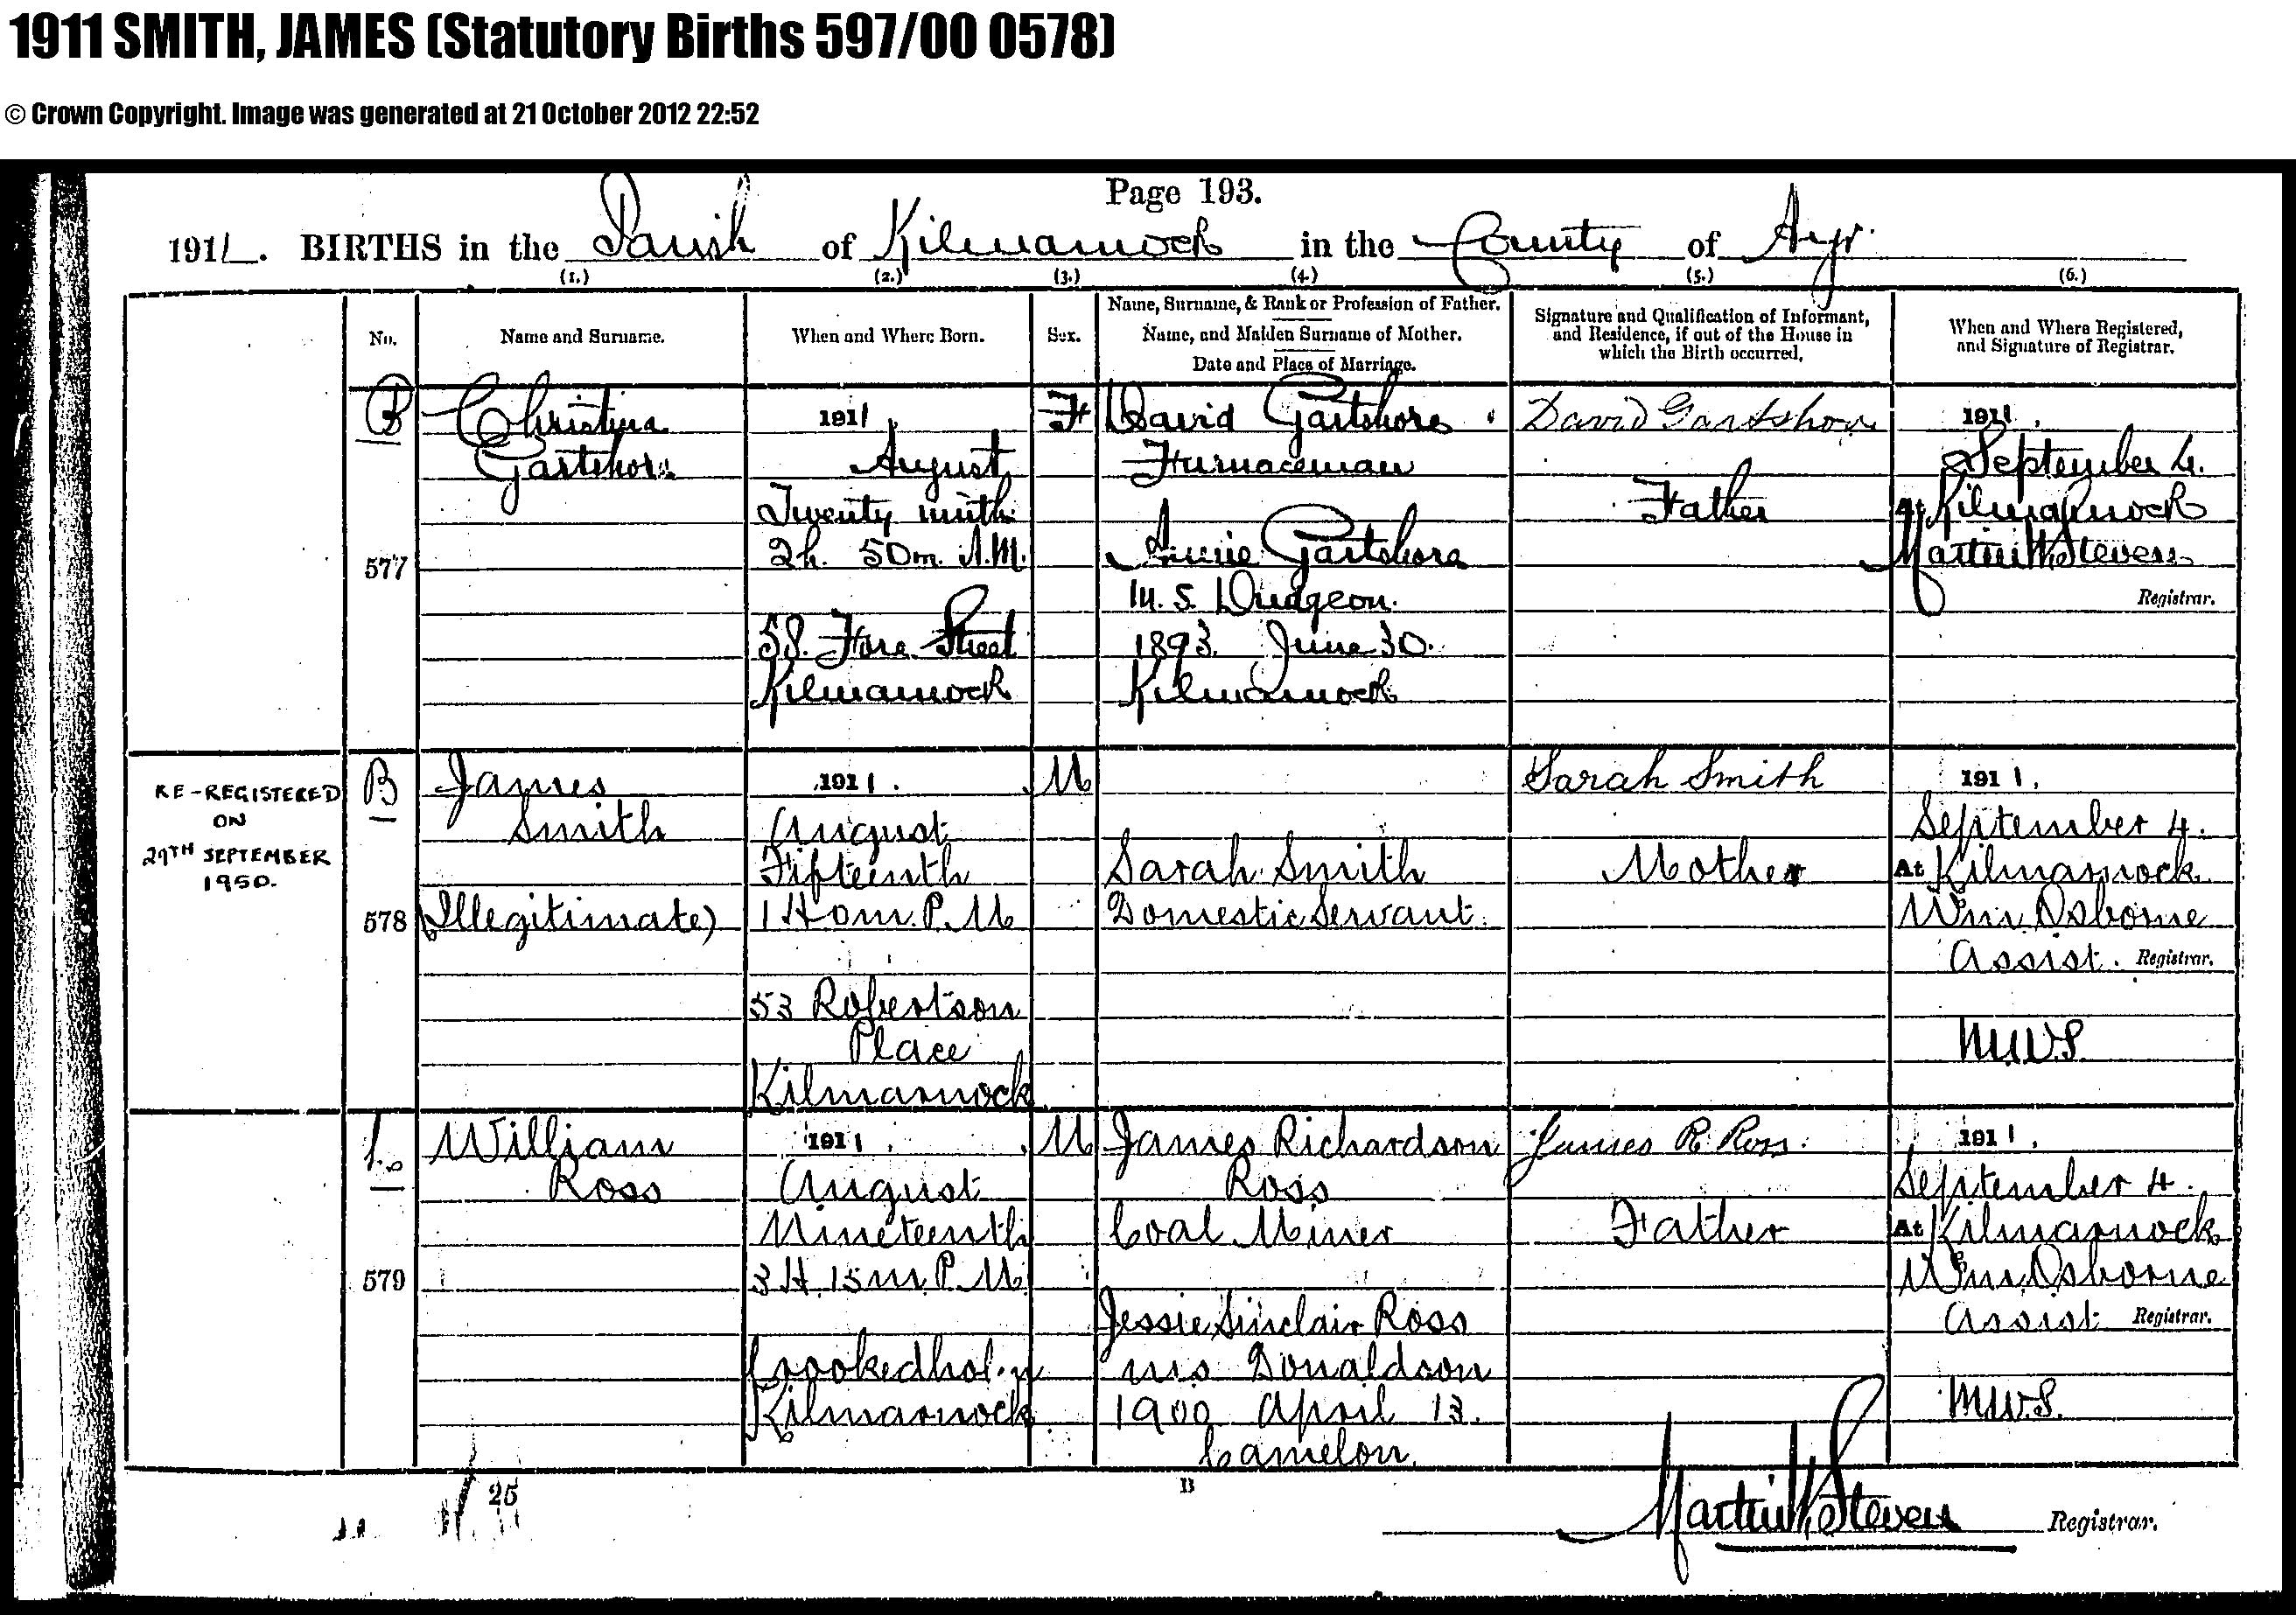 1911 SMITH, JAMES (Statutory Births 597/00 0578)
© Crown Copyright. Image was generated at 21 October 2012 22:52
Page 193.
1911. BIRTHS in the Parish of Kilmarnock in the County of Ayr
(1.) (2.) (3.) (4.) (5.) (6.)
No.
Name and Surname.
When and Where Born.
Sex.
Name, Surname, & Rank or Profession of Father.
Name, and Maiden Surname of Mother.
Date and Place of Marriage.
Signature and Qualification of Informant,
and Residence, if out of the House in
which the Birth occurred.
When and Where Registered,
and Signature of Registrar.
B
577
Christina
Gartshore
1911.
August
Twenty ninth
2h. 50m. A.M.
58 Fore Street
Kilmarnock
F
David Gartshore
Furnaceman
Annie Gartshore
M.S. Dudgeon.
1893. June 30.
Kilmarnock
David Gartshore
Father
1911.
September 4.
At Kilmarnock
Martin W. Steven
Registrar.
RE-REGISTERED
ON
29TH SEPTEMBER
1950.
B
578
James
Smith
(Illegitimate)
1911.
August
Fifteenth
1 H 0 m. P.M
53 Robertson
Place
Kilmarnock
M
Sarah Smith
Domestic Servant
Sarah Smith
Mother
1911.
September 4.
At Kilmarnock
Wm. Osborne
Assist. Registrar.
M.W.S.
579
William
Ross
1911.
August
Nineteenth
3 H 15 m. P.M.
Crookedholm
Kilmarnock
M
James Richardson
Ross
Coal Miner
Jessie Sinclair Ross
m.s. Donaldson
1900 April 13.
Camelon.
James R. Ross.
Father
1911.
September 4.
At Kilmarnock
Wm. Osborne
Assist. Registrar.
M.W.S.
25
B
Martin W. Steven Registrar.